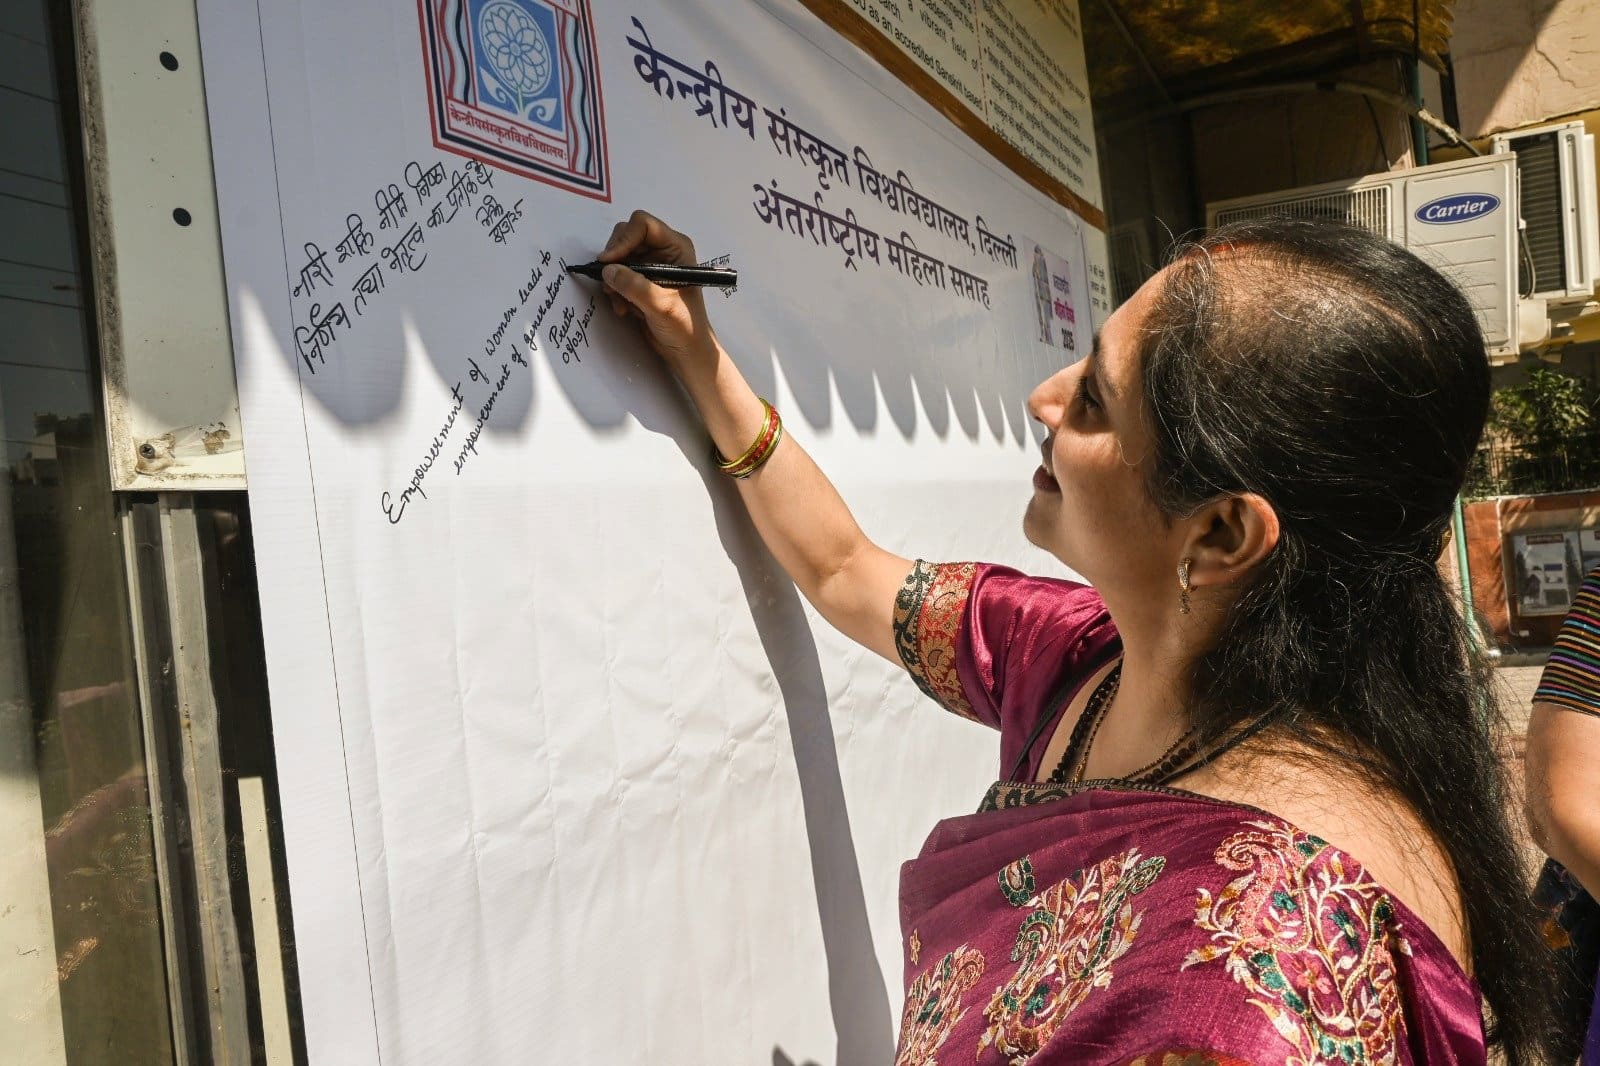 केन्द्रीयसंस्कृतविश्वविद्यालयः
केन्द्रीय संस्कृत विश्वविद्यालय, दिल्ली
अंतर्राष्ट्रीय महिला सप्ताह
नारी शक्ति नीति निष्ठा
निर्णय तथा नेतृत्व का प्रतीक है
Empowerment of women leads to
empowerment of generation!!
Preeti
08/03/2025
academia, the
a vibrant field of
as an accredited Sanskrit based
2025
Carrier